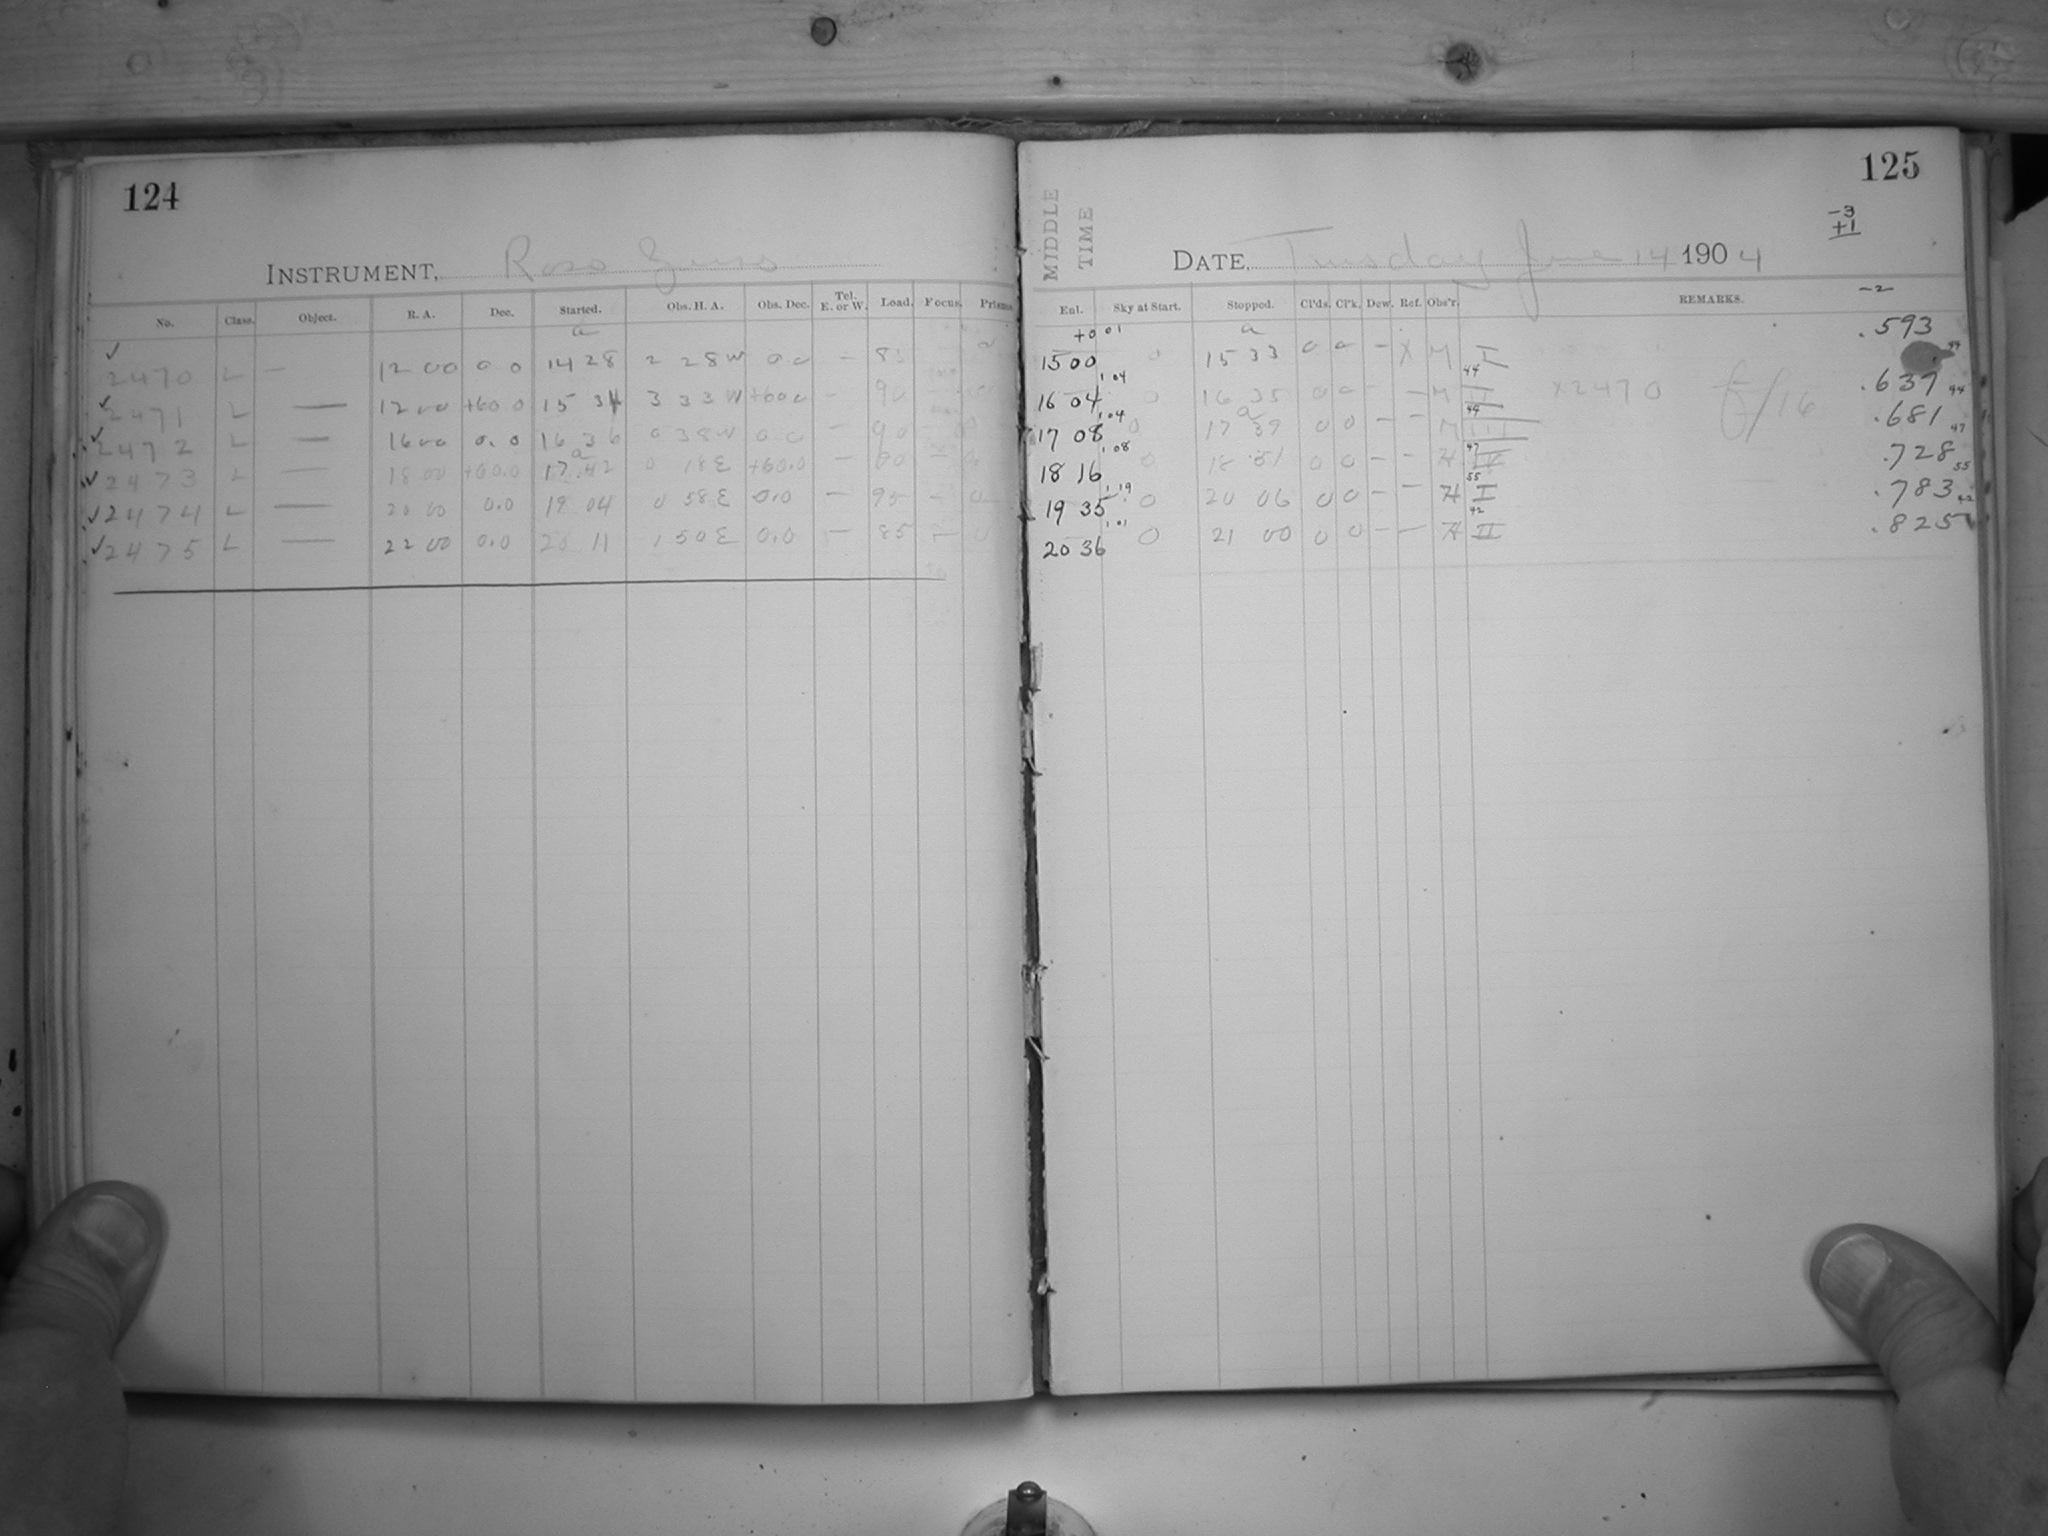 124
INSTRUMENT, Ross Zeiss
No. Class. Object. R. A. Dec. Started. Obs. H. A. Obs. Dec. Tel. E. or W. Load. Focus. Prisms
a
2470 L — 12 00 0 0 14 28 2 28 W 0.0 — 85
2471 L — 12 00 +60 0 15 34 3 33 W +60 0 - 90
2472 L — 16 00 0.0 16 36 0 38 W 0.0 — 90
a
2473 L — 18 00 +60.0 17 42 0 18 E +60.0 — 80
2474 L — 20 00 0.0 19 04 0 58 E 0.0 — 95 -
2475 L — 22 00 0.0 20 11 1 50 E 0.0 — 85 -
125
-3
+1
MIDDLE TIME
DATE, Tuesday June 14 1904
-2
Enl. Sky at Start. Stopped. Cl'ds. Cl'k. Dew. Ref. Obs'r. REMARKS.
+0 01 a
15 00 0 15 33 0 0 — X M I .593
44 1.04 44
16 04 0 16 35 0 0 - - M II x2470 f/16 .637 44
1.04 a 44
17 08 0 17 39 0 0 - - M III .681 47
1.08 47
18 16 0 18 51 0 0 - - H IV .728 55
1.19 55
19 35 0 20 06 0 0 - - H I .783 42
1.01 42
20 36 0 21 00 0 0 - - H II .825